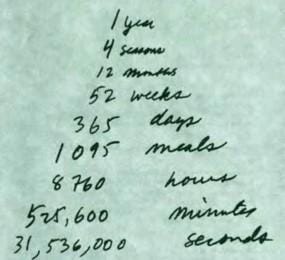 1 year
4 seasons
12 months
52 weeks
365 days
1095 meals
8760 hours
525,600 minutes
31,536,000 seconds